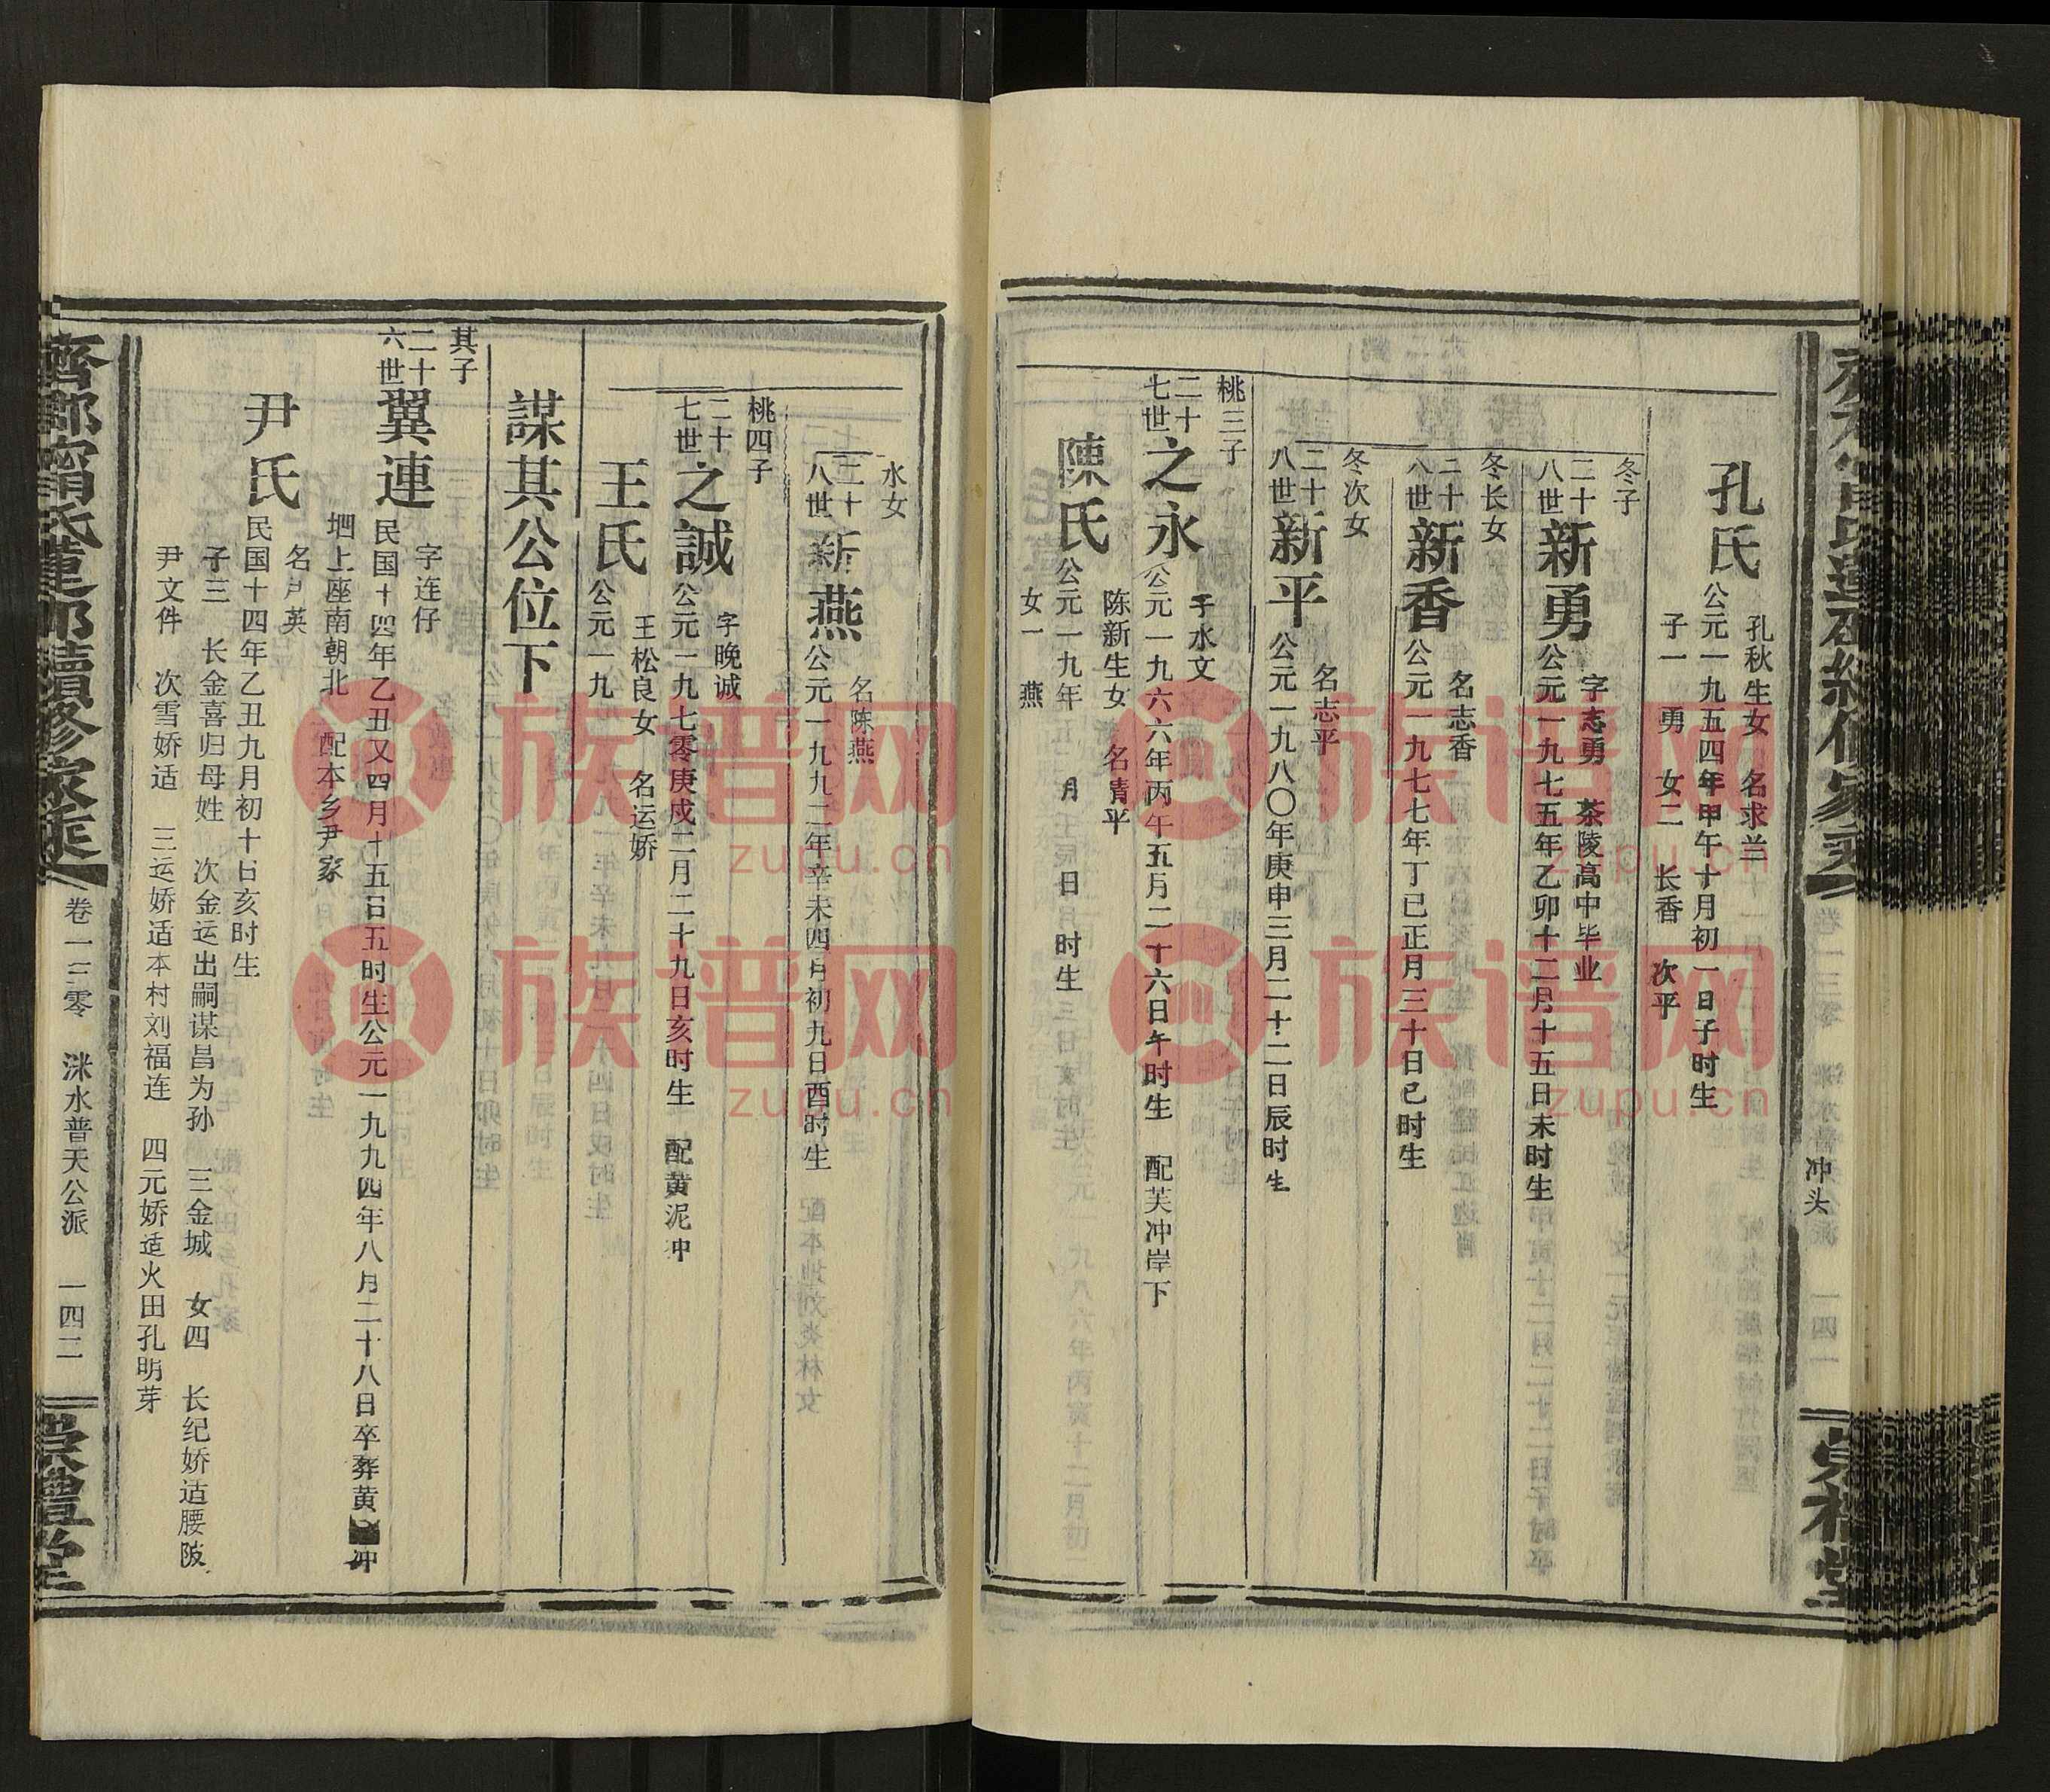 冲头
孔氏
孔秋生女 名求兰
公元一九五四年甲午十月初一日子时生
子一 勇 女二 长香 次平
冬子
二十八世
新勇
字志勇 茶陵高中毕业
公元一九七五年乙卯十二月十五日未时生
冬长女
二十八世
新香
名志香
公元一九七七年丁巳正月三十日巳时生
冬次女
二十八世
新平
名志平
公元一九八〇年庚申三月二十二日辰时生
桃三子
二十七世
之永
子水文
公元一九六六年丙午五月二十六日午时生 配芙冲岸下
陈新生女 名清平
陳氏
公元一九年 月 日 时生
女一 燕
水女
二十八世
新燕
名陈燕
公元一九九二年辛未四月初九日酉时生
桃四子
二十七世
之誠
字晚诚
公元一九七零庚戍二月二十九日亥时生 配黄泥冲
王松良女 名运娇
王氏
公元一九
謀其公位下
其子
二十六世
翼連
字连仔
民国十四年乙丑又四月十五日五时生公元一九九四年八月二十八日卒葬黄 冲
垇上座南朝北 配本乡尹家
尹氏
名 英
民国十四年乙丑九月初十日亥时生
子三 长金喜归母姓 次金运出嗣谋昌为孙 三金城 女四 长纪娇适腰陂
尹文件 次雪娇适 三运娇适本村刘福连 四元娇适火田孔明芽
齊郡甯氏蓮邵續修家乘 卷一三零 洣水普天公派 一四二 崇禮堂
族谱网
zupu.cn
族谱网
zupu.cn
族谱网
zupu.cn
族谱网
zupu.cn